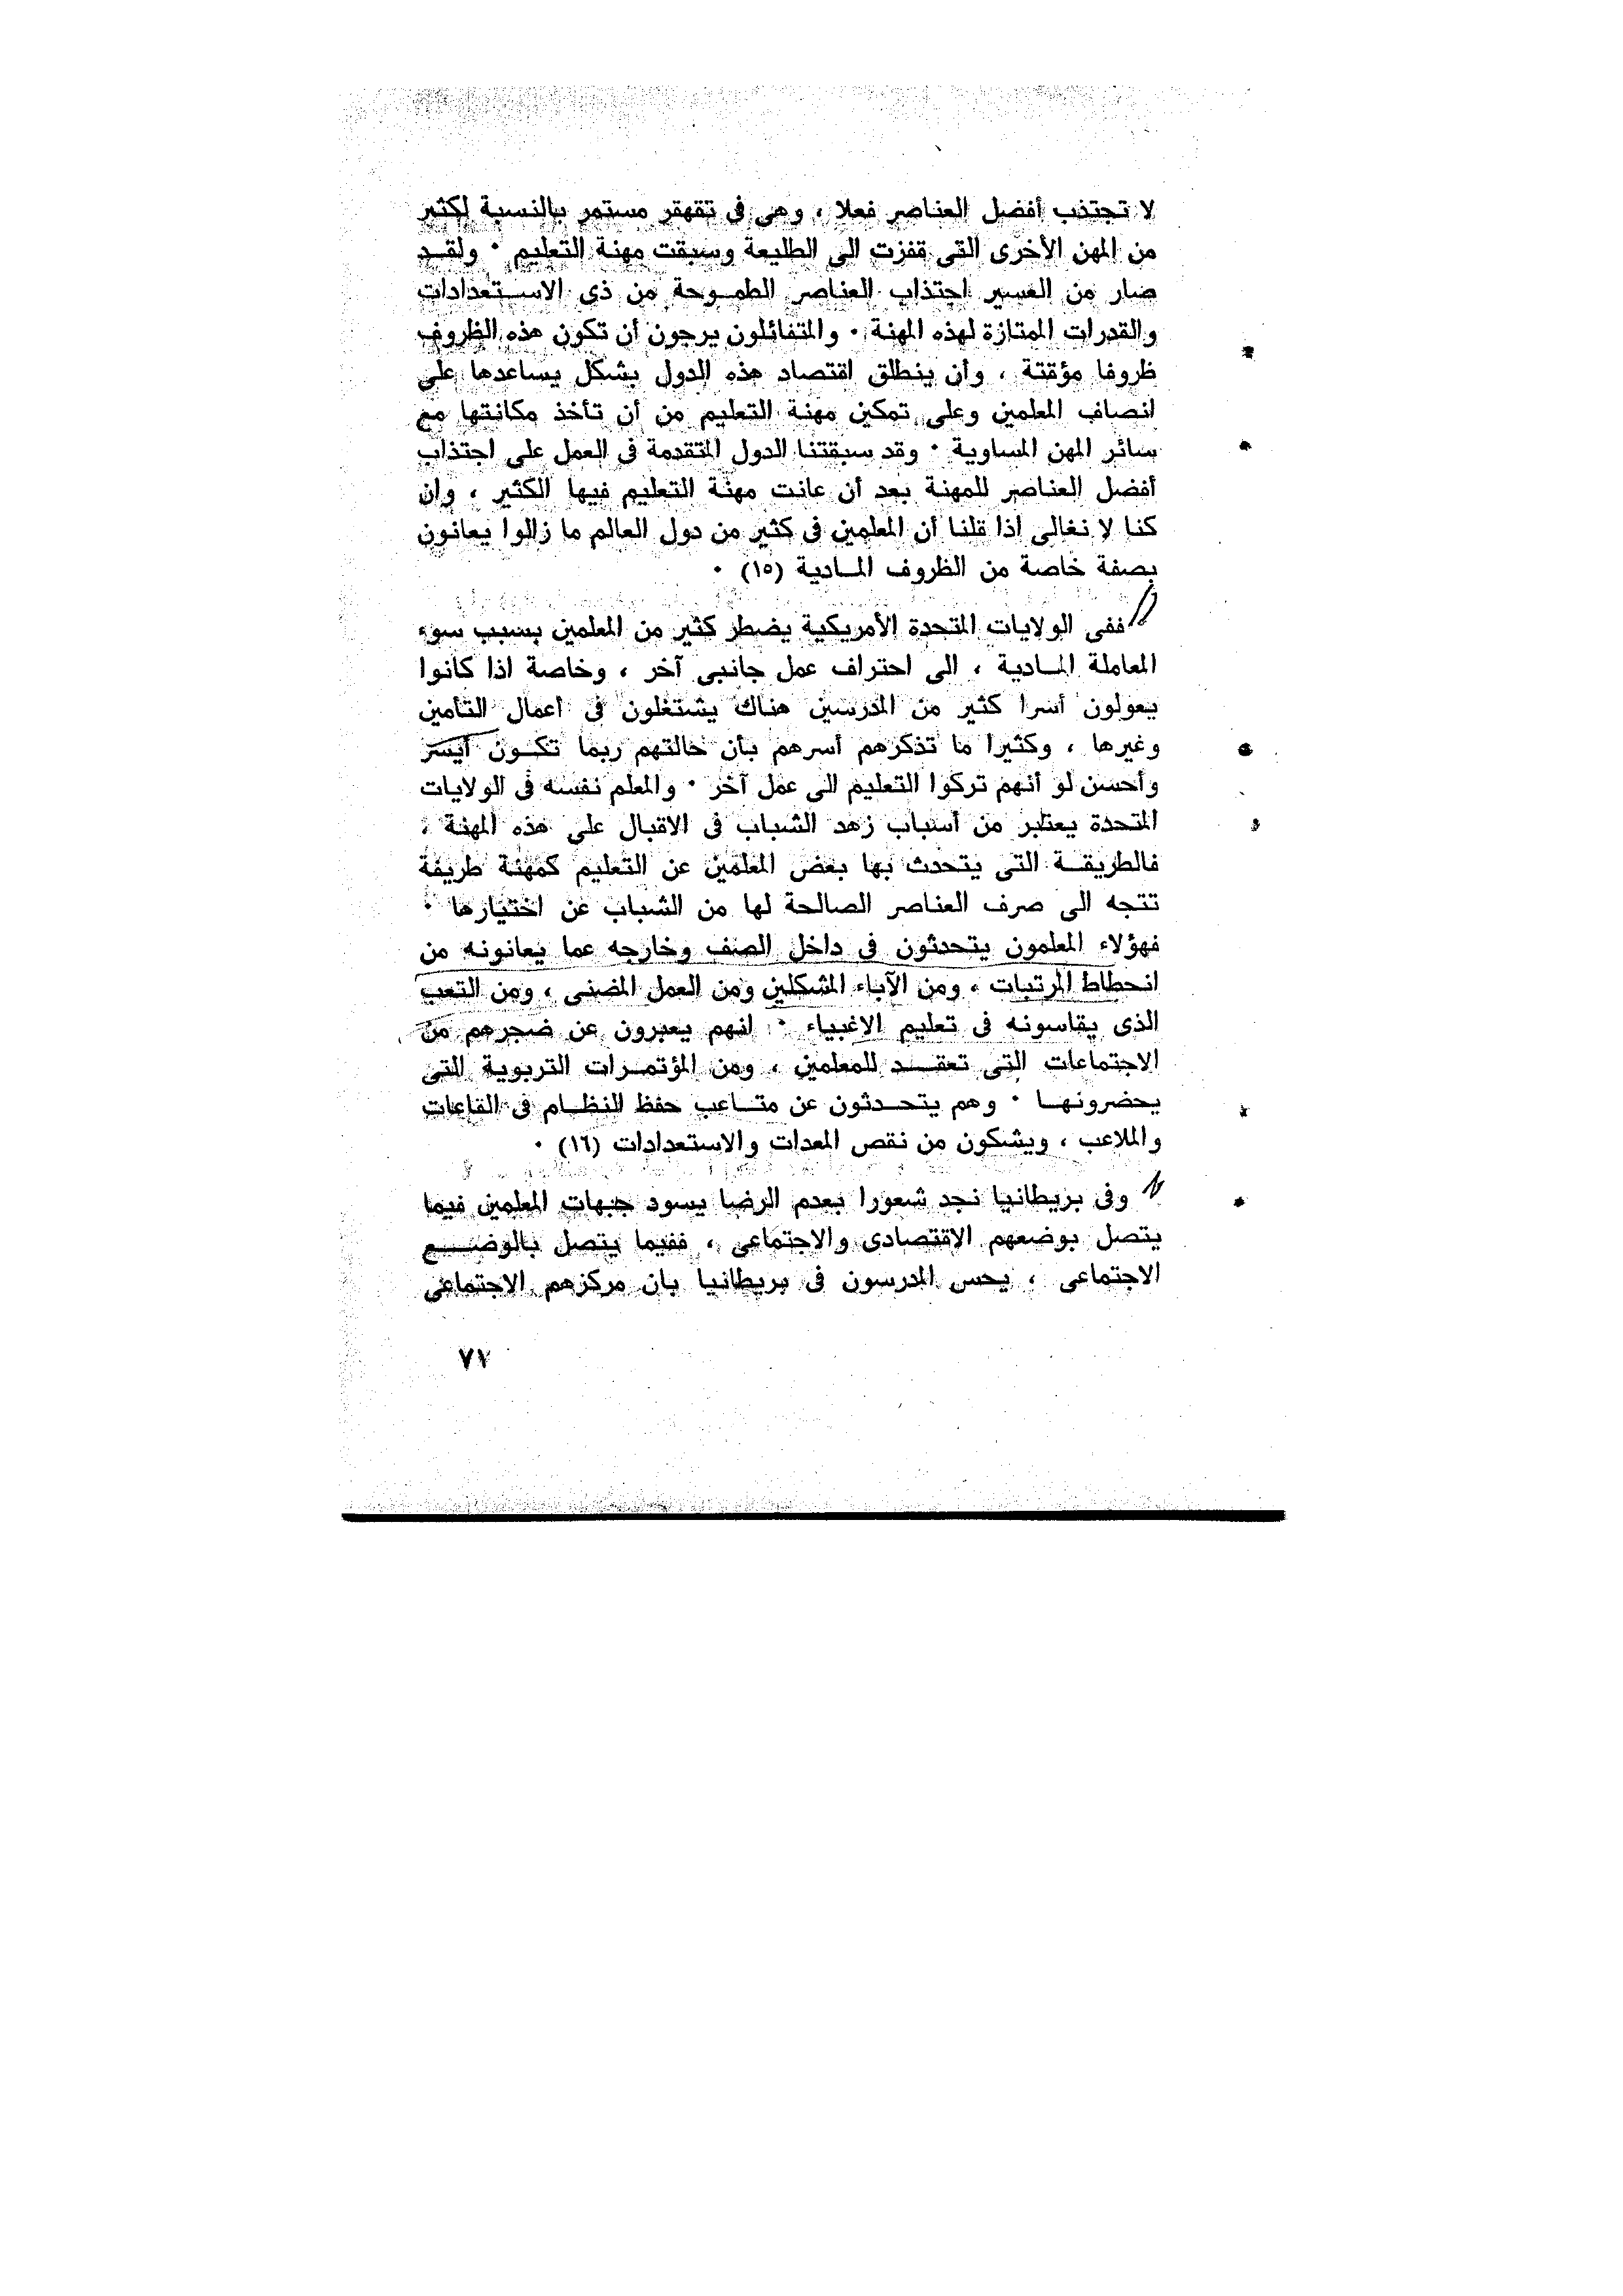 لا تجتذب أفضل العناصر فعلا ، وهى فى تقهقر مستمر بالنسبة لكثير
من المهن الأخرى التى قفزت الى الطليعة وسبقت مهنة التعليم ٠ ولقـد
صار من العسير اجتذاب العناصر الطمـوحة من ذى الاسـتعدادات
والقدرات الممتازة لهذه المهنة ٠ والمتفائلون يرجون أن تكون هذه الظروف
ظروفا مؤقتة ، وأن ينطلق اقتصاد هذه الدول بشكل يساعدها على
انصاف المعلمين وعلى تمكين مهنة التعليم من أن تأخذ مكانتها مع
سائر المهن المساوية ٠ وقد سبقتنا الدول المتقدمة فى العمل على اجتذاب
أفضل العناصر للمهنة بعد أن عانت مهنة التعليم فيها الكثير ، وان
كنا لا نغالى اذا قلنا أن المعلمين فى كثير من دول العالم ما زالوا يعانون
بصفة خاصة من الظروف المـادية (١٥) ٠
ففى الولايات المتحدة الأمريكية يضطر كثير من المعلمين بسبب سوء
المعاملة المـادية ، الى احتراف عمل جانبى آخر ، وخاصة اذا كانوا
يعولون أسرا كثير من المدرسين هناك يشتغلون فى أعمال التأمين
وغيرها ، وكثيرا ما تذكرهم أسرهم بأن حالتهم ربما تكـون أيسر
وأحسن لو أنهم تركوا التعليم الى عمل آخر ٠ والمعلم نفسه فى الولايات
المتحدة يعتبر من أسباب زهد الشباب فى الاقبال على هذه المهنة ،
فالطريقـة التى يتحدث بها بعض المعلمين عن التعليم كمهنة طريفة
تتجه الى صرف العناصر الصالحة لها من الشباب عن اختيارها ٠
فهؤلاء المعلمون يتحدثون فى داخل الصف وخارجه عما يعانونه من
انحطاط المرتبات ، ومن الآباء المشكلين ومن العمل المضنى ، ومن التعب
الذى يقاسونه فى تعليم الاغبياء ٠ انهم يعبرون عن ضجرهم من
الاجتماعات التى تعقـد للمعلمين ، ومن المؤتمـرات التربوية التى
يحضرونهـا ٠ وهم يتحـدثون عن متـاعب حفظ النظـام فى القاعات
والملاعب ، ويشكون من نقص المعدات والاستعدادات (١٦) ٠
وفى بريطانيا نجد شعورا بعدم الرضا يسود جبهات المعلمين فيما
يتصل بوضعهم الاقتصادى والاجتماعى ، ففيما يتصل بالوضـع
الاجتماعى ، يحس المدرسون فى بريطانيا بان مركزهم الاجتماعى
٧٧